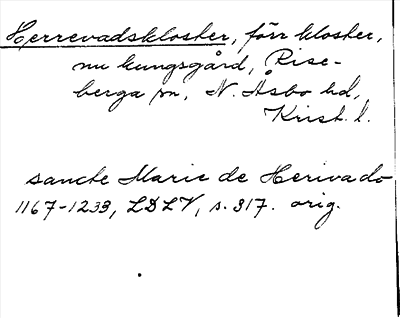 Herrevadskloster, förr kloster,
nu kungsgård, Rise-
berga sn, N. Åsbo hd,
Krist. l.
sancte Marie de Herivado
1167-1233, LDLV, s. 317. orig.